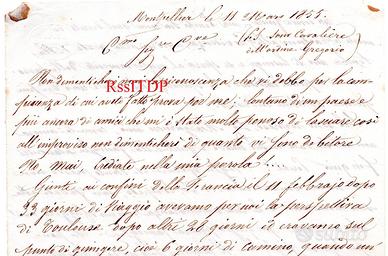 Montpellier le 11 Mars 1855.
(Il Signor Cavaliere
Martina Gregorio)
Non dimenticherò mai la riconoscenza che vi debbo per la com-
piacenza di cui avete fatto prova per me; lontano di un paese e
più ancora di amici che mi è stato molto penoso di lasciare così
all'improviso non dimenticherò di quanto vi sono debitore
No, Mai, Crediate nella mia parola!...
Giunti ai confini della Francia il 11 febbrajo dopo
33 giorni di viaggio avevamo per noi la perspettiva
di Toulouse dopo altri 28 giorni ed eravamo sul
punto di giungere, cioè 6 giorni di camino, quando un
RssITDP
subito